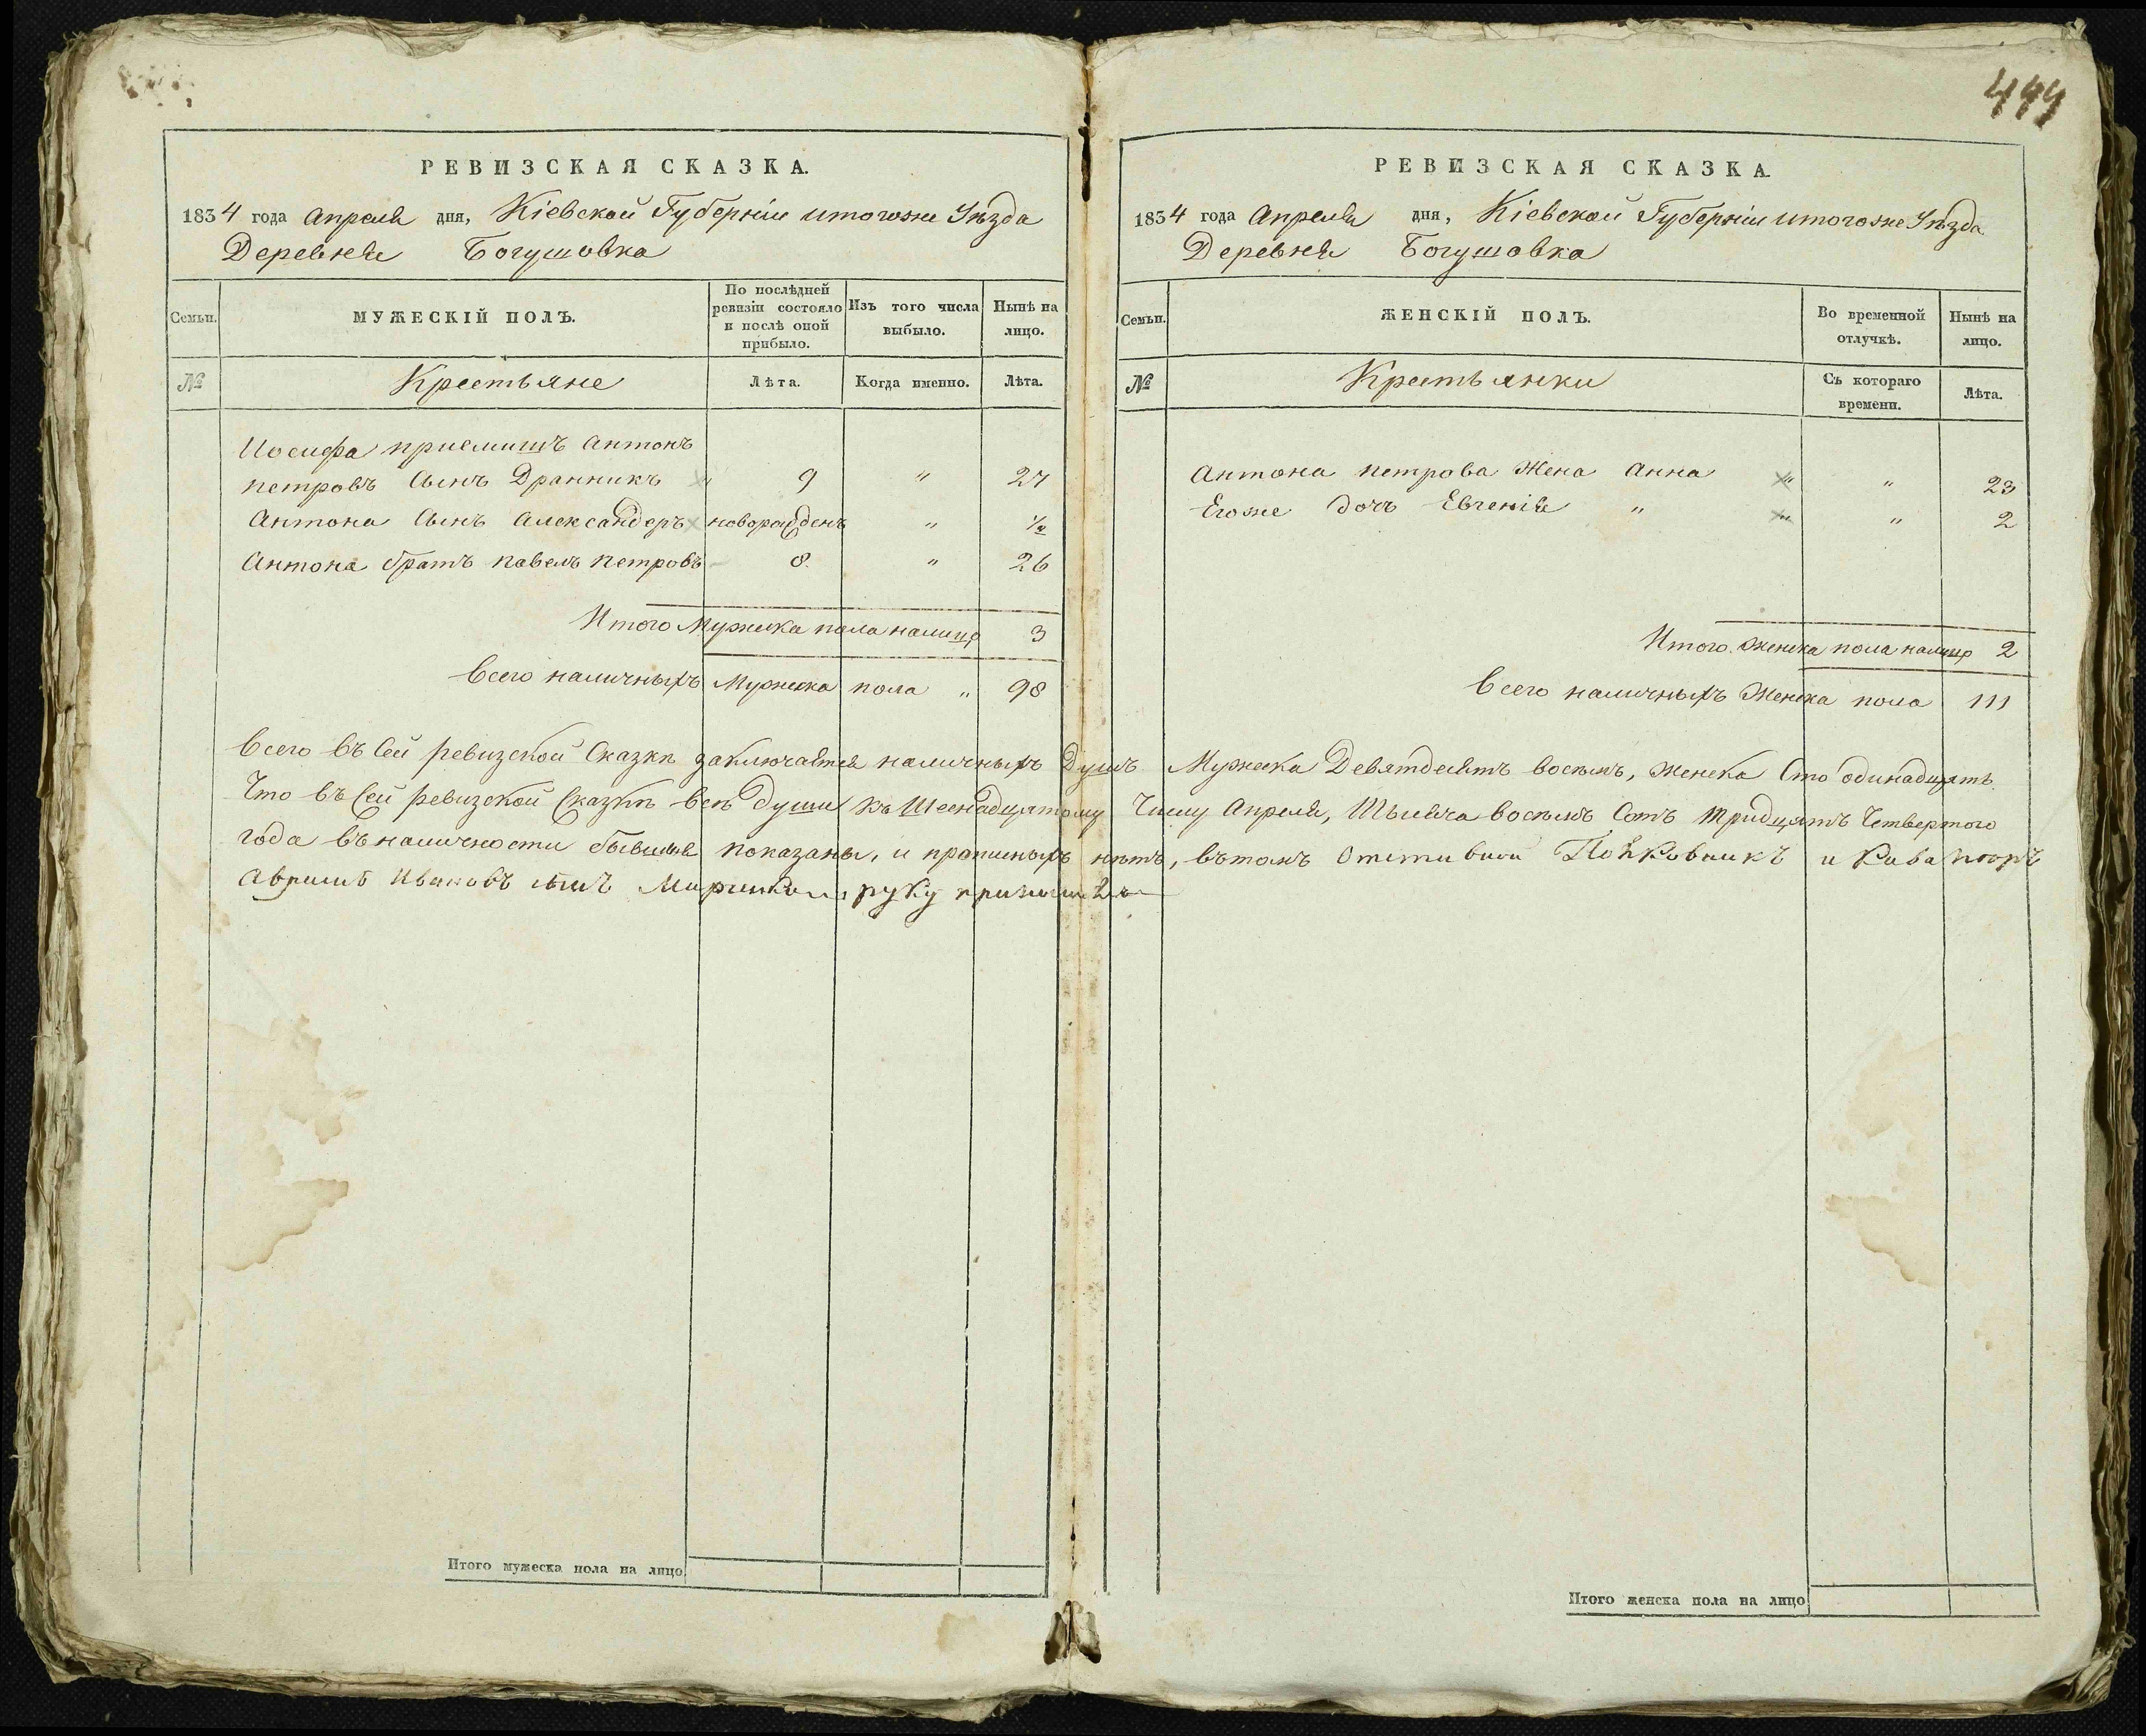 444
РЕВИЗСКАЯ СКАЗКА.
1834 года Апреля дня, Кіевской Губерніи итогоже Уѣзда
Деревня Богушовка
Семьи.
МУЖЕСКІЙ ПОЛЪ.
По послѣдней ревизіи состояло и послѣ оной прибыло.
Изъ того числа выбыло.
Нынѣ на лицо.
№
Крестьяне
Лѣта.
Когда именно.
Лѣта.
Иосифа приемишъ Антонъ
петровъ Сынъ Дранникъ " 9 " 24
Антона Сынъ Александеръ новорожденъ " ½
Антона братъ павелъ петровъ 8. " 26
Итого Мужеска пола налицо 3
Всего наличныхъ Мужеска пола " 98
РЕВИЗСКАЯ СКАЗКА.
1834 года Апреля дня, Кіевской Губерніи итогоже Уѣзда
Деревня Богушовка
Семьи.
ЖЕНСКІЙ ПОЛЪ.
Во временной отлучкѣ.
Нынѣ на лицо.
№
Крестьянки
Съ котораго времени.
Лѣта.
Антона петрова Жена Анна " " 23
Егоже дочъ Евгенія " " " 2
Итого женска пола налицо 2
Всего наличныхъ Женска пола 111
Всего въ Сей ревизской Сказки заключается наличныхъ Душъ Мужеска Девятдесятъ восемъ, женска Сто одинадцять.
Что въ Сей ревизской Сказки всѣ души къ Шеснадцятому Числу Апреля, Тысяча восемъ Сотъ тридцятъ Четвертого
года въ наличности бывшия показаны, и прописныхъ нѣтъ, въ томъ Отставной Полковникъ и Кавалеръ
Ивановъ Сынъ руку приложилъ
Итого мужеска пола на лицо
Итого женска пола на лицо